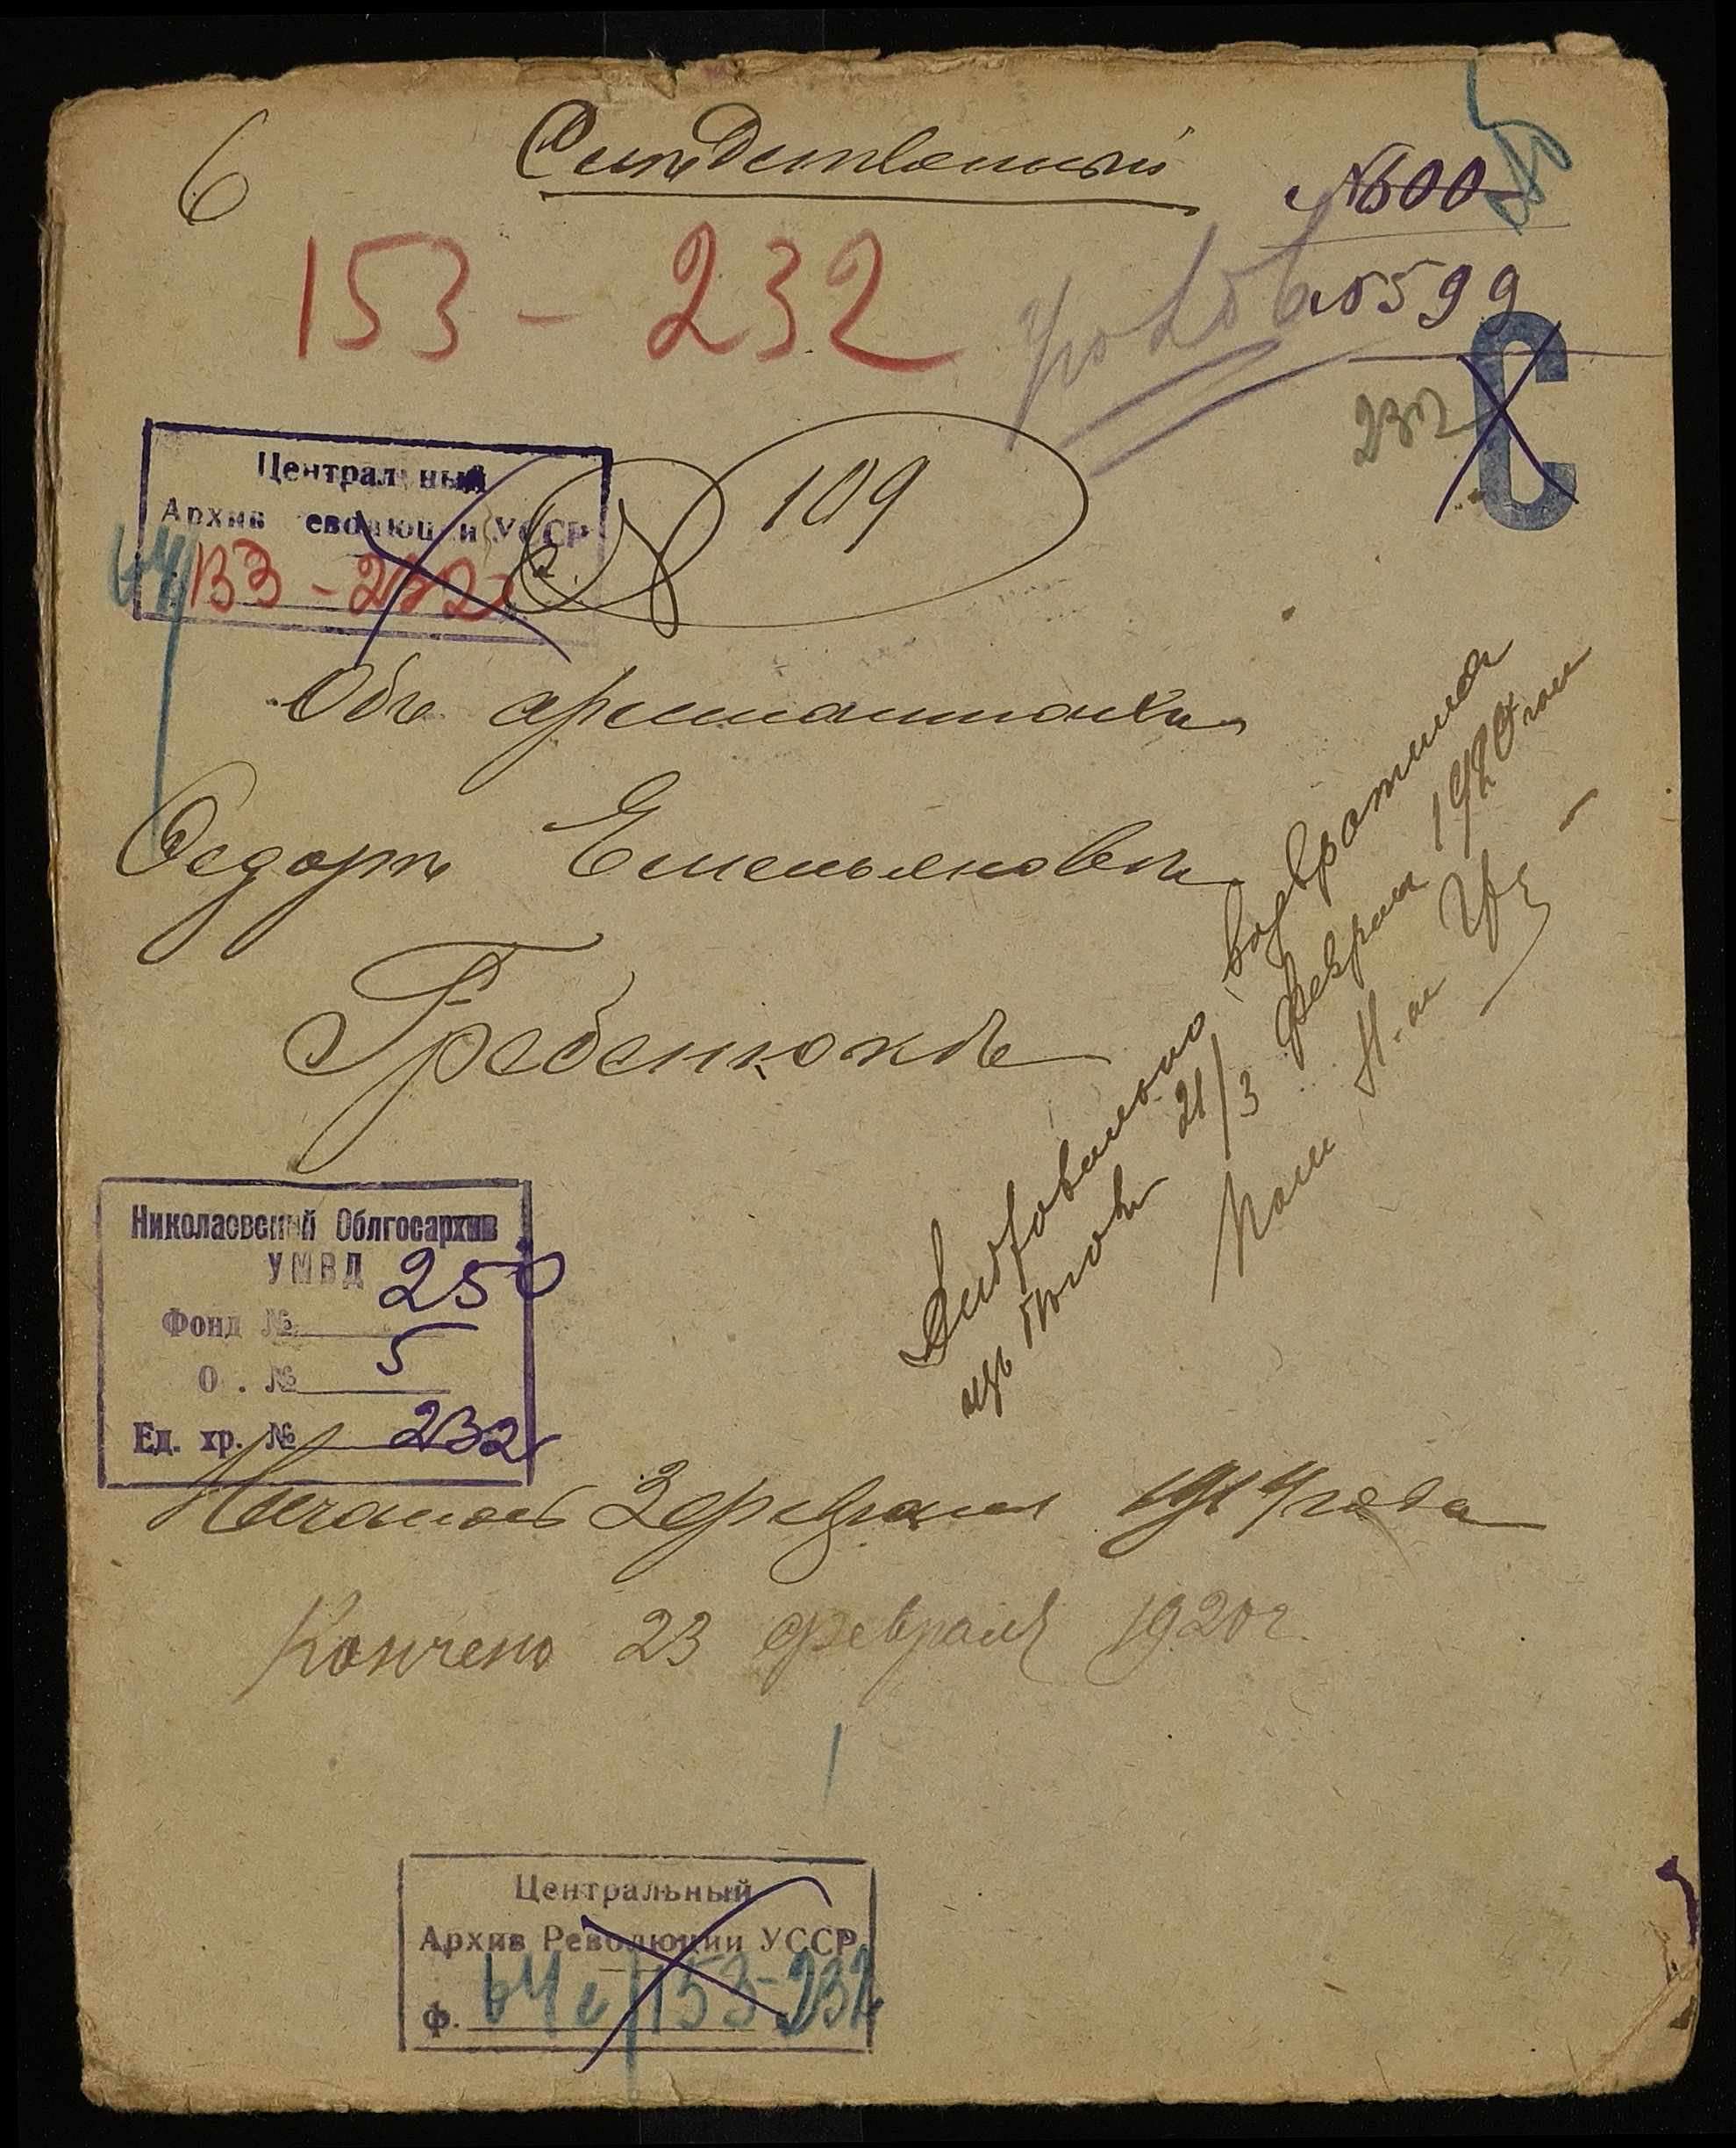 6
Слѣдственный
№ 600
153 - 232
10599
232
С
Центральный
Архив Революции УССР
109
Объ арестантѣ
Федорѣ Емельяновѣ
Гребенюкѣ
Добровольно возвратился
изъ бѣговъ 21/3 февраля 1920 года
Николаевский Облгосархив
УМВД
Фонд № 250
О . № 5
Ед. хр. № 232
Начато 3 февраля 1914 года
Кончено 23 февраля 1920 г.
Центральный
Архив Революции УССР
ф. 64с/153-232